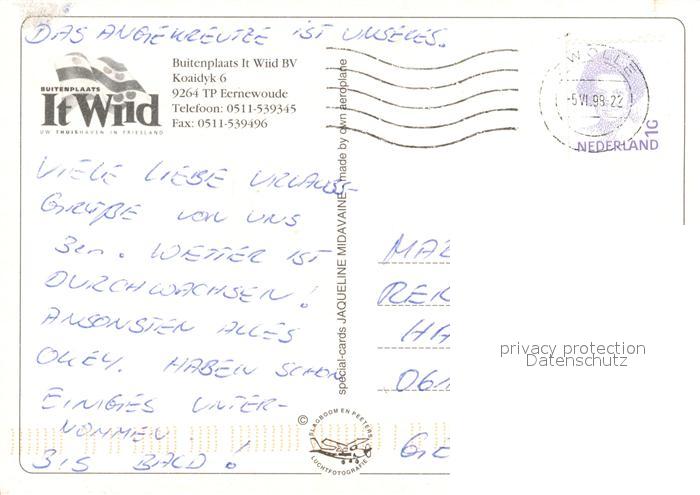 DAS ANGEKREUTZE IST UNSERES.
BUITENPLAATS
It Wiid
UW THUISHAVEN IN FRIESLAND
Buitenplaats It Wiid BV
Koaidyk 6
9264 TP Eernewoude
Telefoon: 0511-539345
Fax: 0511-539496
VIELE LIEBE URLAUBS-
GRÜßE VON UNS
3en. WETTER IST
DURCHWACHSEN!
ANSONSTEN ALLES
OKEY. HABEN SCHON
EINIGES UNTER-
NOMMEN.
BIS BALD!
special-cards JAQUELINE MIDAVAINE made by own aeroplane
© SLAGBOOM EN PEETERS
LUCHTFOTOGRAFIE
WOLLE
-5.VI.98-22
NEDERLAND 1G
MAR
REN
HA
061
GE
privacy protection
Datenschutz